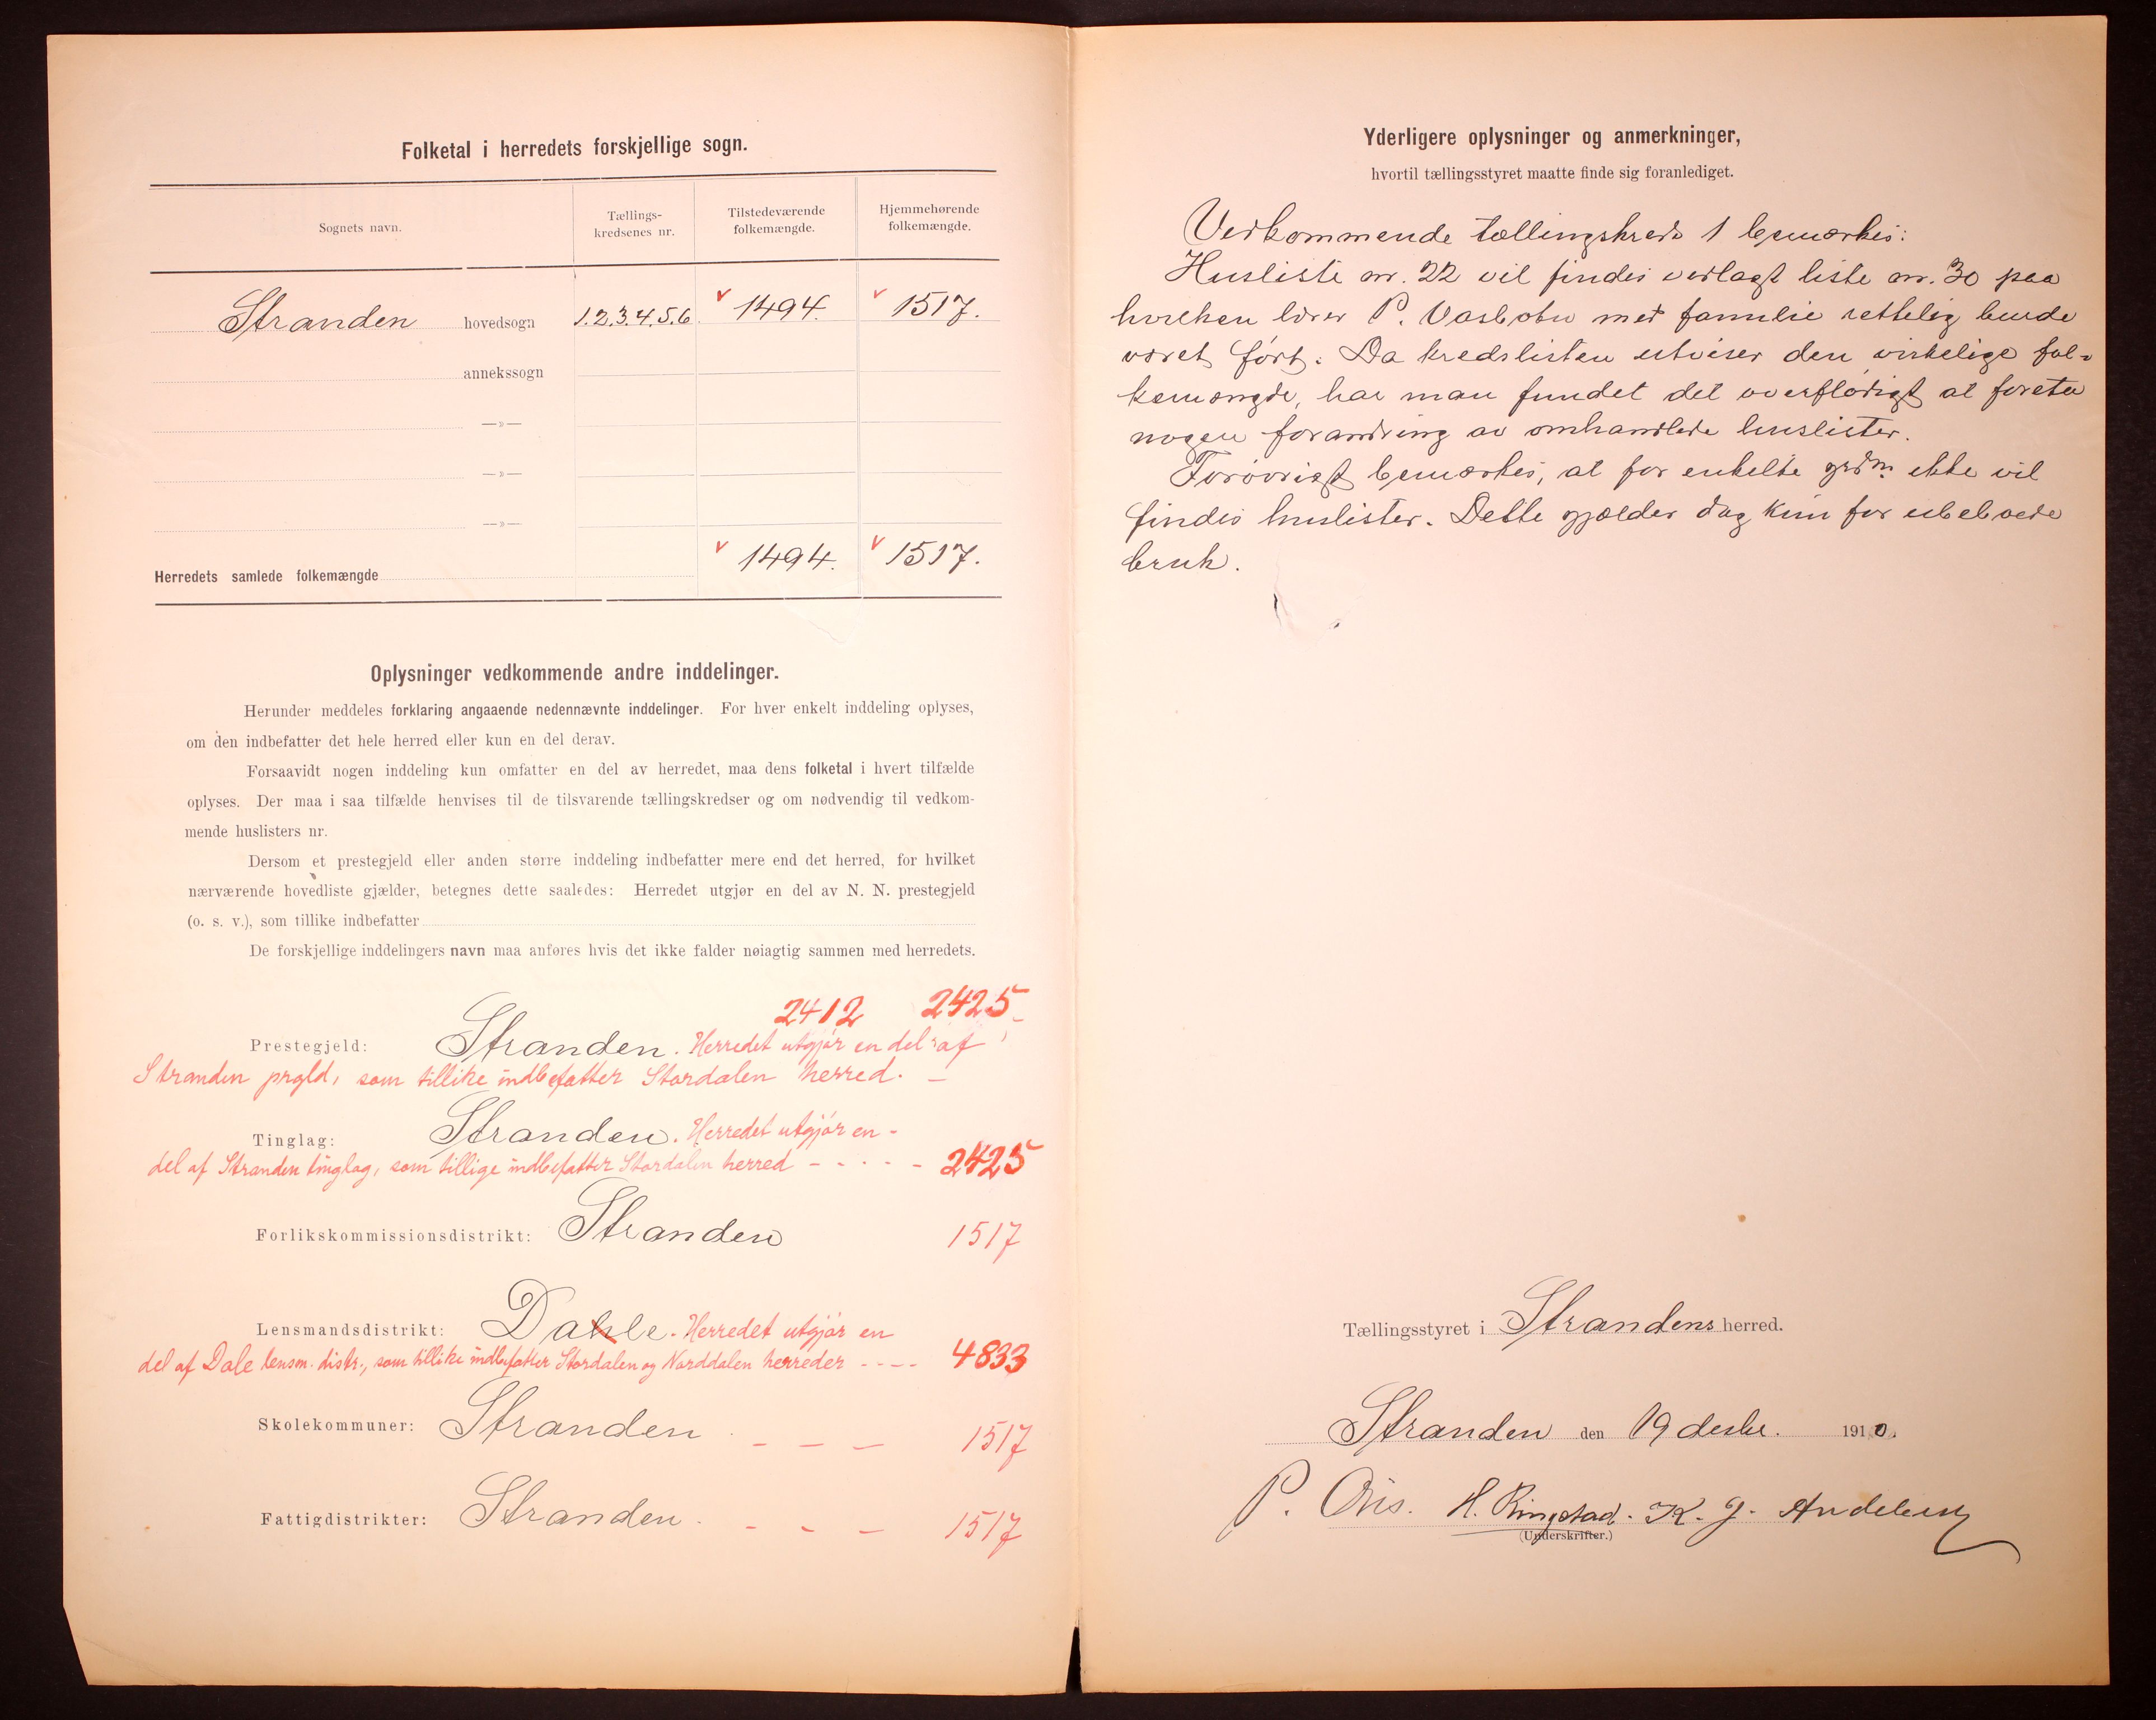 Folketal i herredets forskjellige sogn.
Sognets navn.
Tællings-
kredsenes nr.
Tilstedeværende
folkemængde.
Hjemmehørende
folkemængde.
Stranden hovedsogn 1.2.3.4.5.6. v 1494. v 1517.
annekssogn
—»—
—»—
—»—
Herredets samlede folkemængde v 1494. v 1517.
Oplysninger vedkommende andre inddelinger.
Herunder meddeles forklaring angaaende nedennævnte inddelinger. For hver enkelt inddeling oplyses,
om den indbefatter det hele herred eller kun en del derav.
Forsaavidt nogen inddeling kun omfatter en del av herredet, maa dens folketal i hvert tilfælde
oplyses. Der maa i saa tilfælde henvises til de tilsvarende tællingskredser og om nødvendig til vedkom-
mende huslisters nr.
Dersom et prestegjeld eller anden større inddeling indbefatter mere end det herred, for hvilket
nærværende hovedliste gjælder, betegnes dette saaledes: Herredet utgjør en del av N. N. prestegjeld
(o. s. v.), som tillike indbefatter
De forskjellige inddelingers navn maa anføres hvis det ikke falder nøiagtig sammen med herredets.
2412 2425
Prestegjeld: Stranden. Herredet utgjør en del af
Stranden prgld, som tillike indbefatter Stordalen herred. —
Tinglag: Stranden. Herredet utgjør en -
del af Stranden tinglag, som tillige indbefatter Stordalen herred - - - - - 2425
Forlikskommissionsdistrikt: Stranden 1517
Lensmandsdistrikt: Dahle. Herredet utgjør en
del af Dale lensm. distr., som tillike indbefatter Stordalen og Norddalen herreder - - - - 4833
Skolekommuner: Stranden — — — 1517
Fattigdistrikter: Stranden. - - — 1517
Yderligere oplysninger og anmerkninger,
hvortil tællingsstyret maatte finde sig foranlediget.
Vedkommende tællingskreds 1 bemærkes:
Husliste nr. 22 vil findes vedlagt liste nr. 30 paa
hvilken lærer P. Vasbotn met familie rettelig burde
været ført. Da kredslisten utviser den virkelige fol-
kemængde, har man fundet det overflødigt at foreta
nogen forandring av omhandlede huslister.
Forøvrigt bemærkes, at for enkelte grdnr. ikke vil
findes huslister. Dette gjælder dog kun for ubeboede
bruk.
Tællingsstyret i Strandens herred.
Stranden den 19 desbr. 1910.
P. Øvis. H. Ringstad. K. J.
(Underskrifter.)